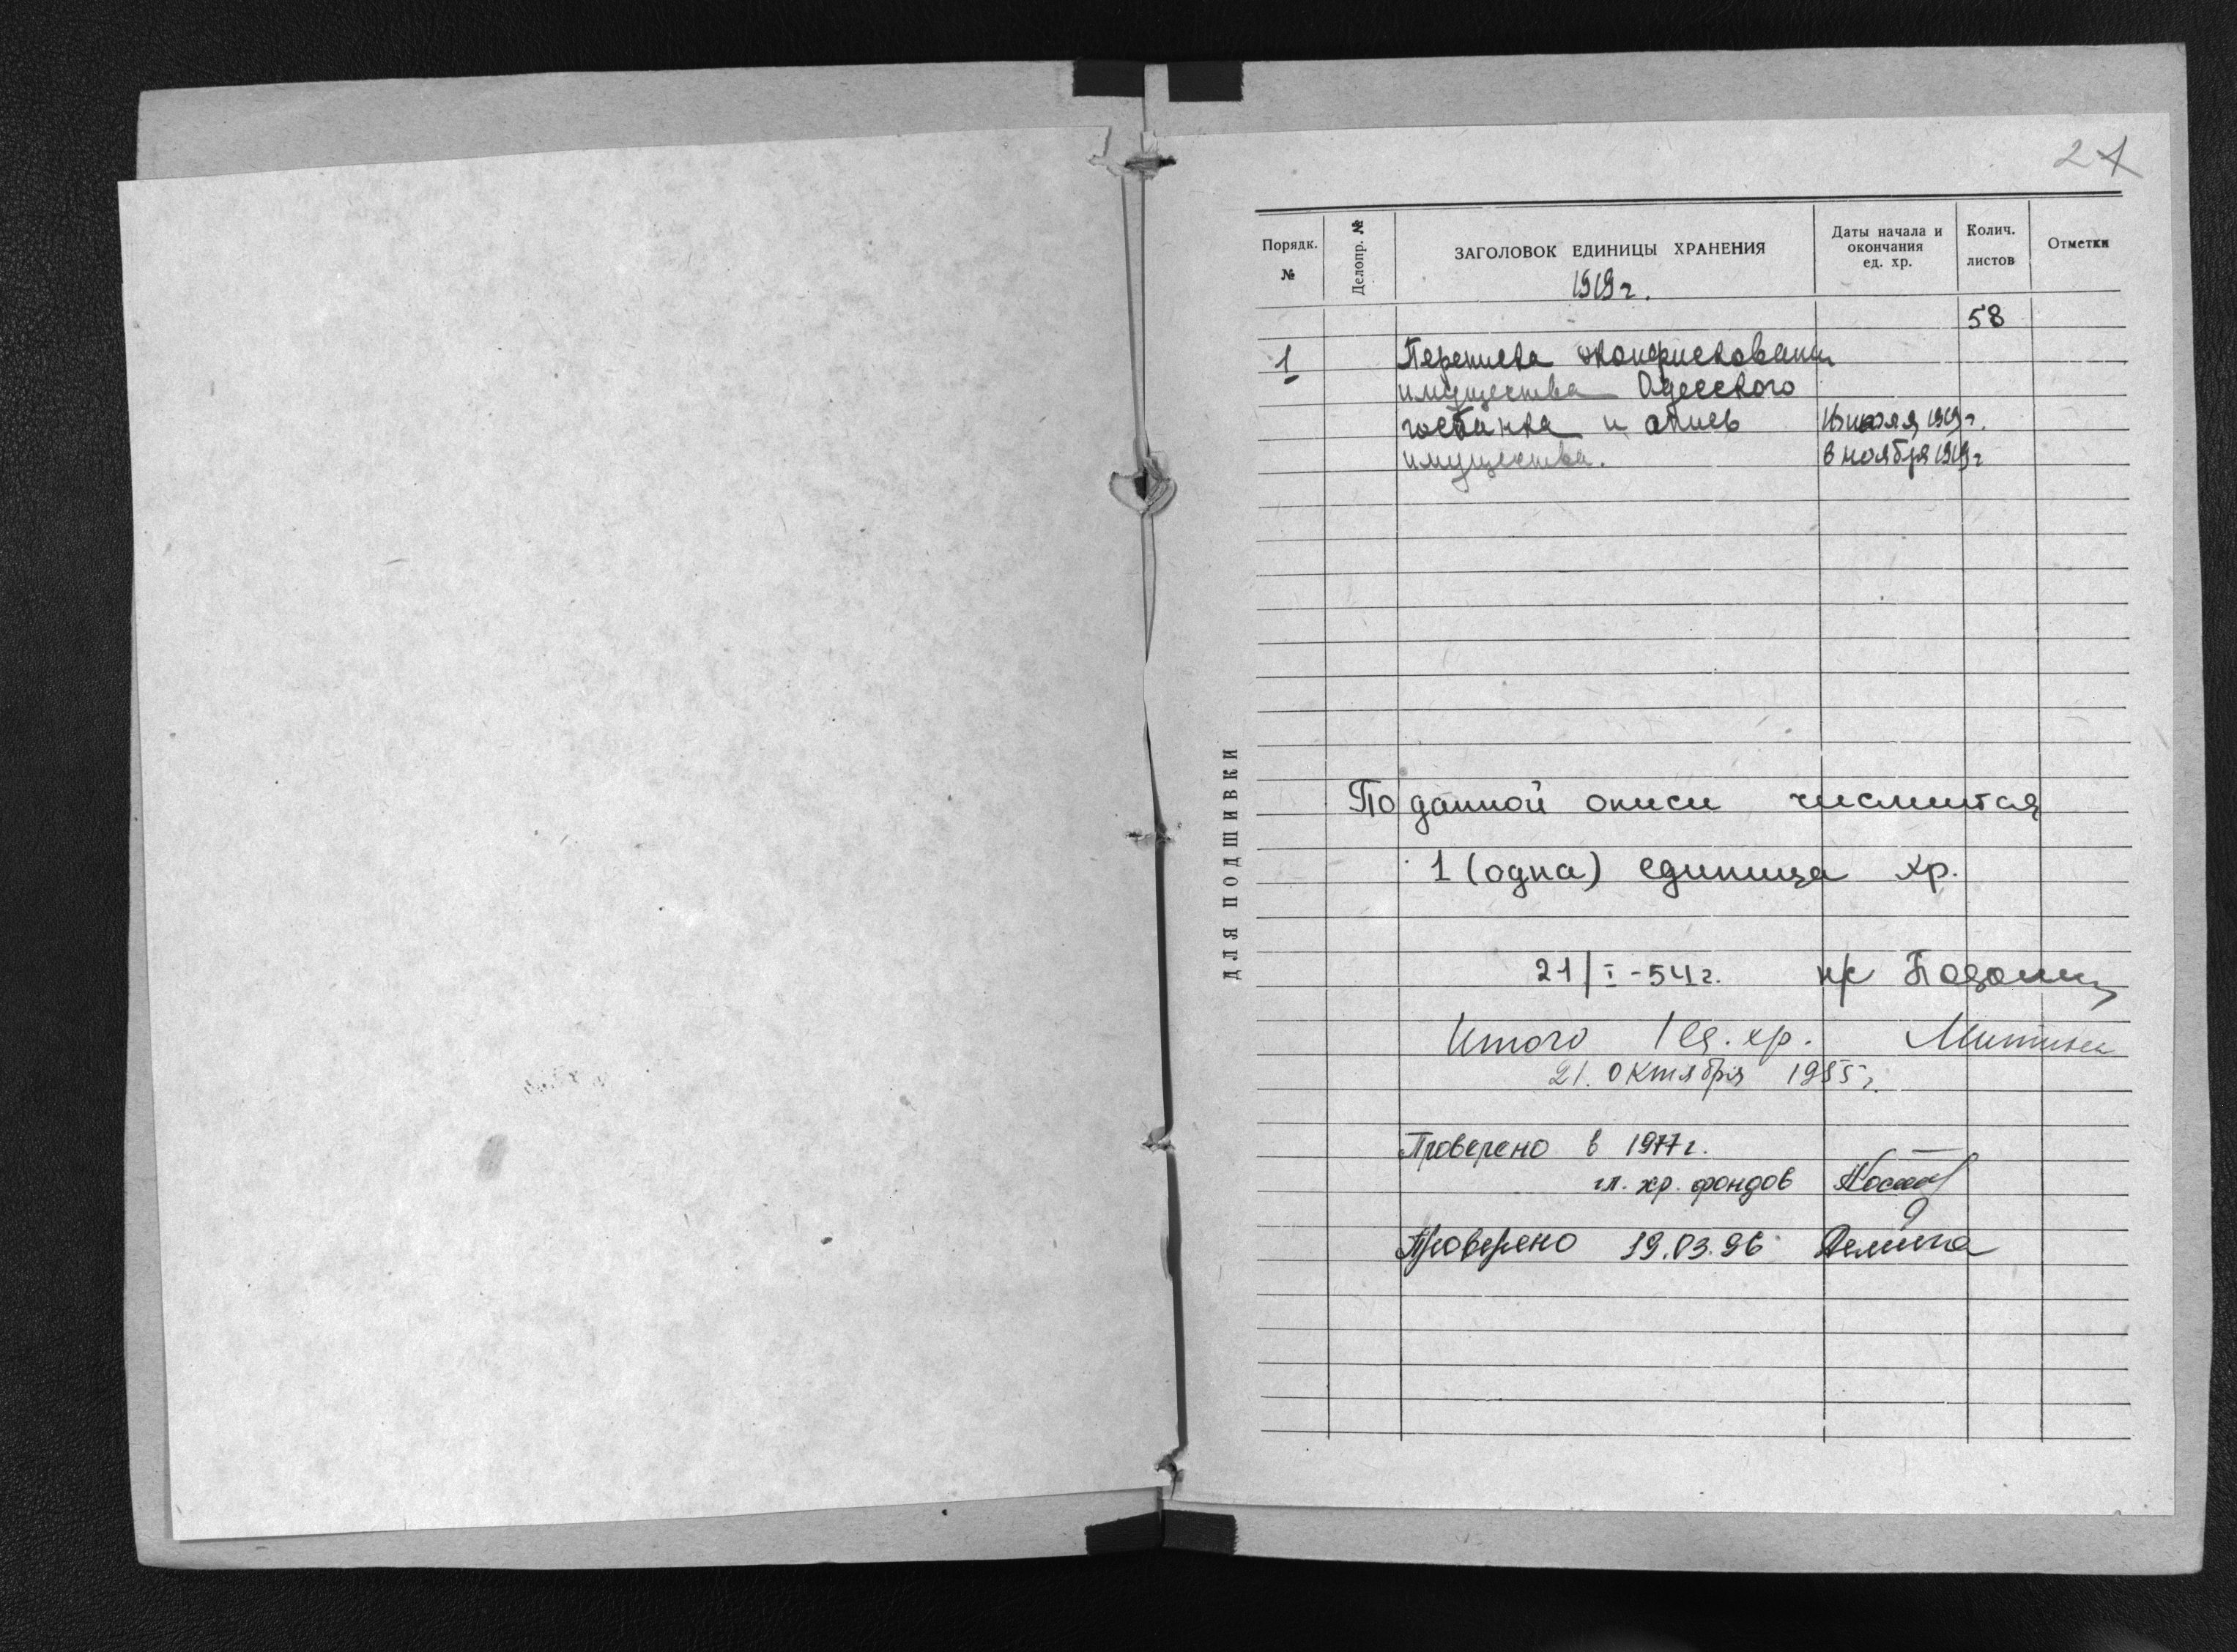 21
Порядк. №
Делопр. №
ЗАГОЛОВОК ЕДИНИЦЫ ХРАНЕНИЯ
Даты начала и окончания ед. хр.
Колич. листов
Отметки
1919 г.
58
1
Переписка о конфискации
имущества Одесского
госбанка и опись
июля 1919 г.
имущества.
8 ноября 1919 г
ДЛЯ ПОДШИВКИ
По данной описи числится
1 (одна) единица хр.
21/I-54 г.
Итого 1 ед. хр.
21. октября 1955 г.
Проверено в 1977 г.
гл. хр. фондов
Проверено 19.03.96